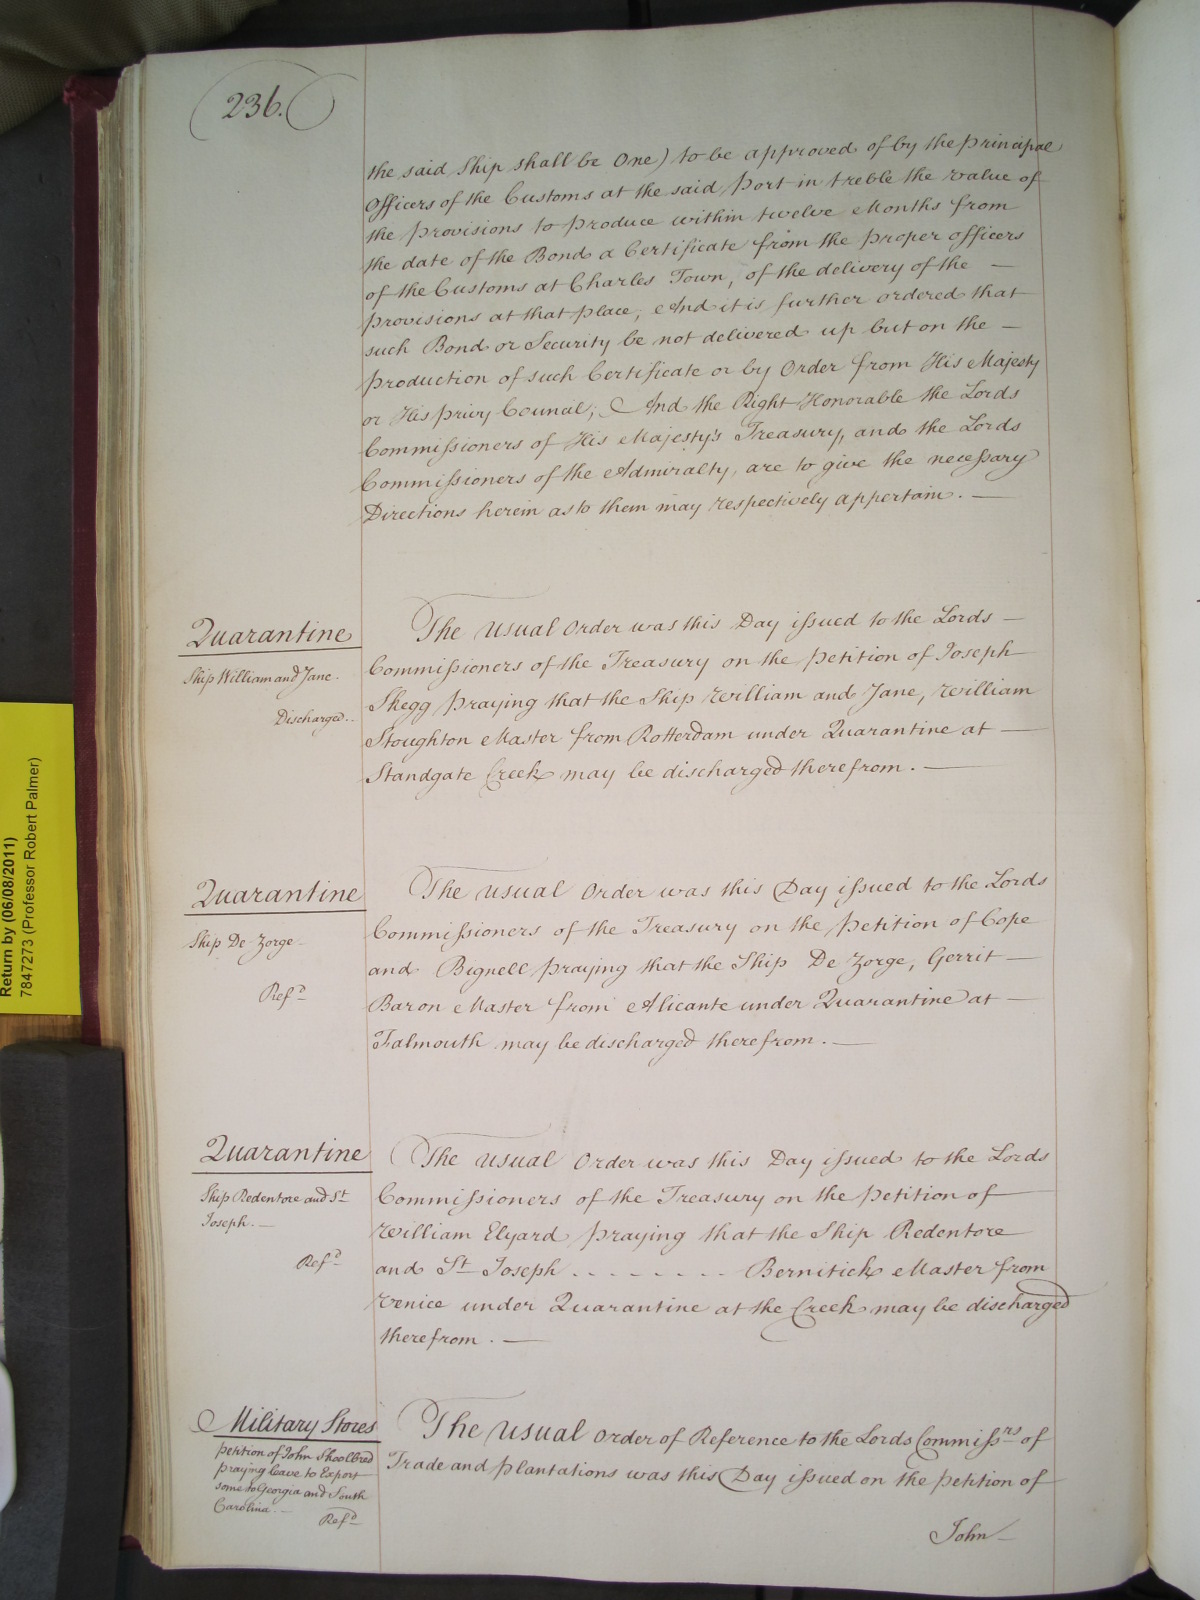 236.
the said Ship shall be One) to be approved of by the principal
Officers of the Customs at the said Port in treble the value of
the provisions to produce within twelve Months from
the date of the Bond a Certificate from the proper officers
of the Customs at Charles Town, of the delivery of the —
provisions at that place, And it is further ordered that
such Bond or Security be not delivered up but on the —
production of such Certificate or by Order from His Majesty
or His privy Council; And the Right Honorable the Lords
Commissioners of His Majesty's Treasury, and the Lords
Commissioners of the Admiralty, are to give the necessary
Directions herein as to them may respectively appertain. —
Quarantine
Ship William and Jane.
Discharged..
The usual Order was this Day issued to the Lords —
Commissioners of the Treasury on the Petition of Joseph
Skegg praying that the Ship William and Jane, William
Stoughton Master from Rotterdam under Quarantine at —
Standgate Creek may be discharged therefrom. —
Quarantine
Ship De Zorge
Refd
The usual Order was this Day issued to the Lords
Commissioners of the Treasury on the Petition of Cope
and Bignell praying that the Ship De Zorge, Gerrit —
Baron Master from Alicante under Quarantine at —
Falmouth may be discharged therefrom. —
Quarantine
Ship Redentore and St
Joseph. —
Refd
The usual Order was this Day issued to the Lords
Commissioners of the Treasury on the Petition of
William Elyard praying that the Ship Redentore
and St Joseph . . . . . . . . Bernitich Master from
Venice under Quarantine at the Creek may be discharged
therefrom. —
Military Stores
petition of John Shoolbred
praying leave to Export
some to Georgia and South
Carolina. —
Refd
The usual Order of Reference to the Lords Commissrs of
Trade and Plantations was this Day issued on the petition of
John —
Return by (06/08/2011)
7847273 (Professor Robert Palmer)